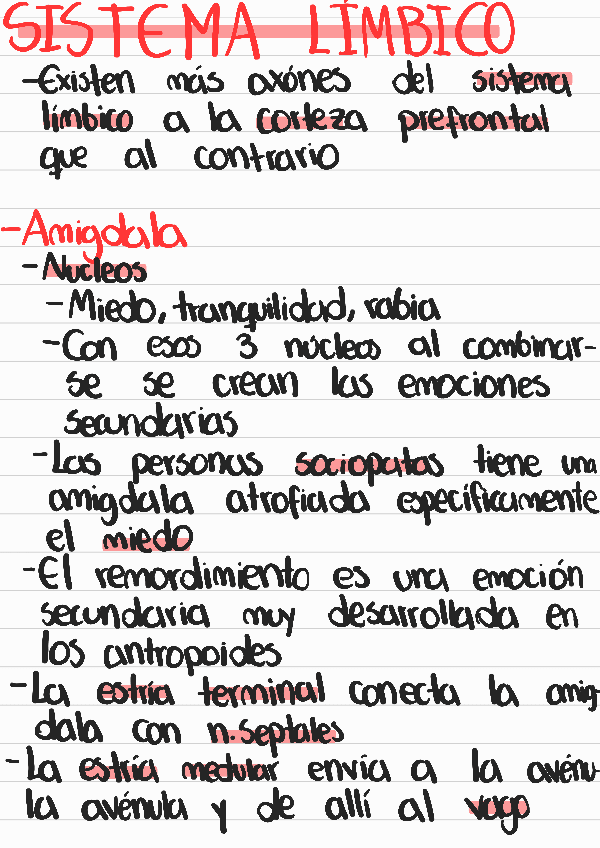 SISTEMA LÍMBICO
-Existen más axónes del sistema
límbico a la corteza prefrontal
que al contrario
-Amigdala
-Nucleos
-Miedo, tranquilidad, rabia
-Con esos 3 núcleos al combinar-
se se crean las emociones
secundarias
-Las personas sociopatas tiene una
amigdala atrofiada específicamente
el miedo
-El remordimiento es una emoción
secundaria muy desarrollada en
los antropoides
-La estría terminal conecta la amig-
dala con n. septales
-La estría medular envía a la avénu-
la avénula y de allí al vago